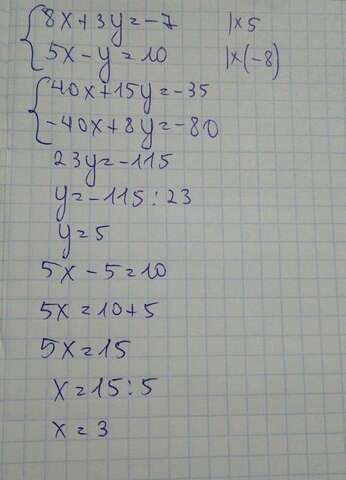 8x+3y=-7 |x5
5x-y=10 |x(-8)
40x+15y=-35
-40x+8y=-80
23y=-115
y=-115:23
y=5
5x-5=10
5x=10+5
5x=15
x=15:5
x=3